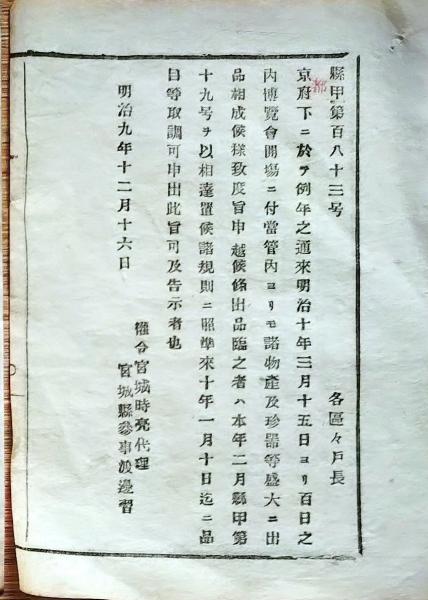 縣甲第百八十三号
各區々戸長
都
京府下ニ於テ例年之通來明治十年三月十五日ヨリ百日之
内博覽會開塲ニ付當管内ヨリモ諸物產及珍噐等盛大ニ出
品相成候樣致度旨申越候條出品臨之者ハ本年二月縣甲第
十九号ヲ以相達置候諸規則ニ照凖來十年一月十日迄ニ品
目等取調可申出此旨可及告示者也
明治九年十二月十六日
權令宮城時亮代理
宮城縣參事渡邊習